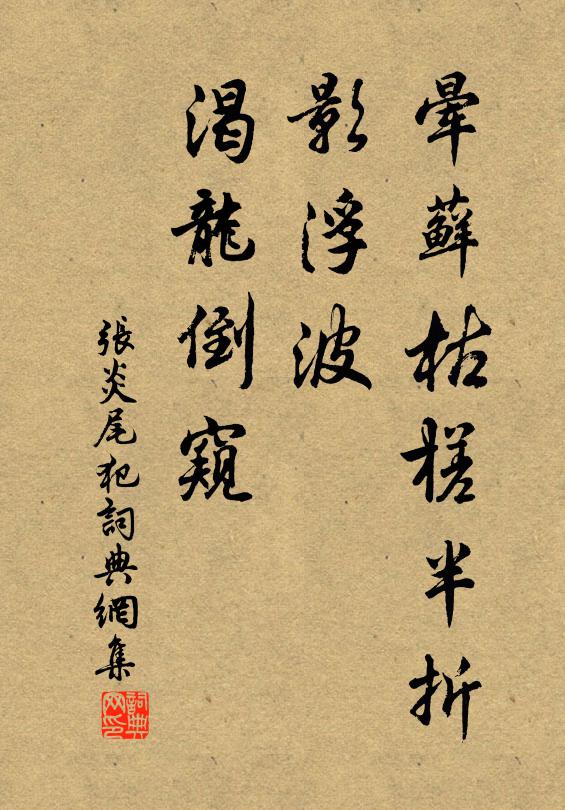 暈蘚枯槎半折
影浮波
渴龍倒窺
張炎尾犯詞典網集
詞典网印